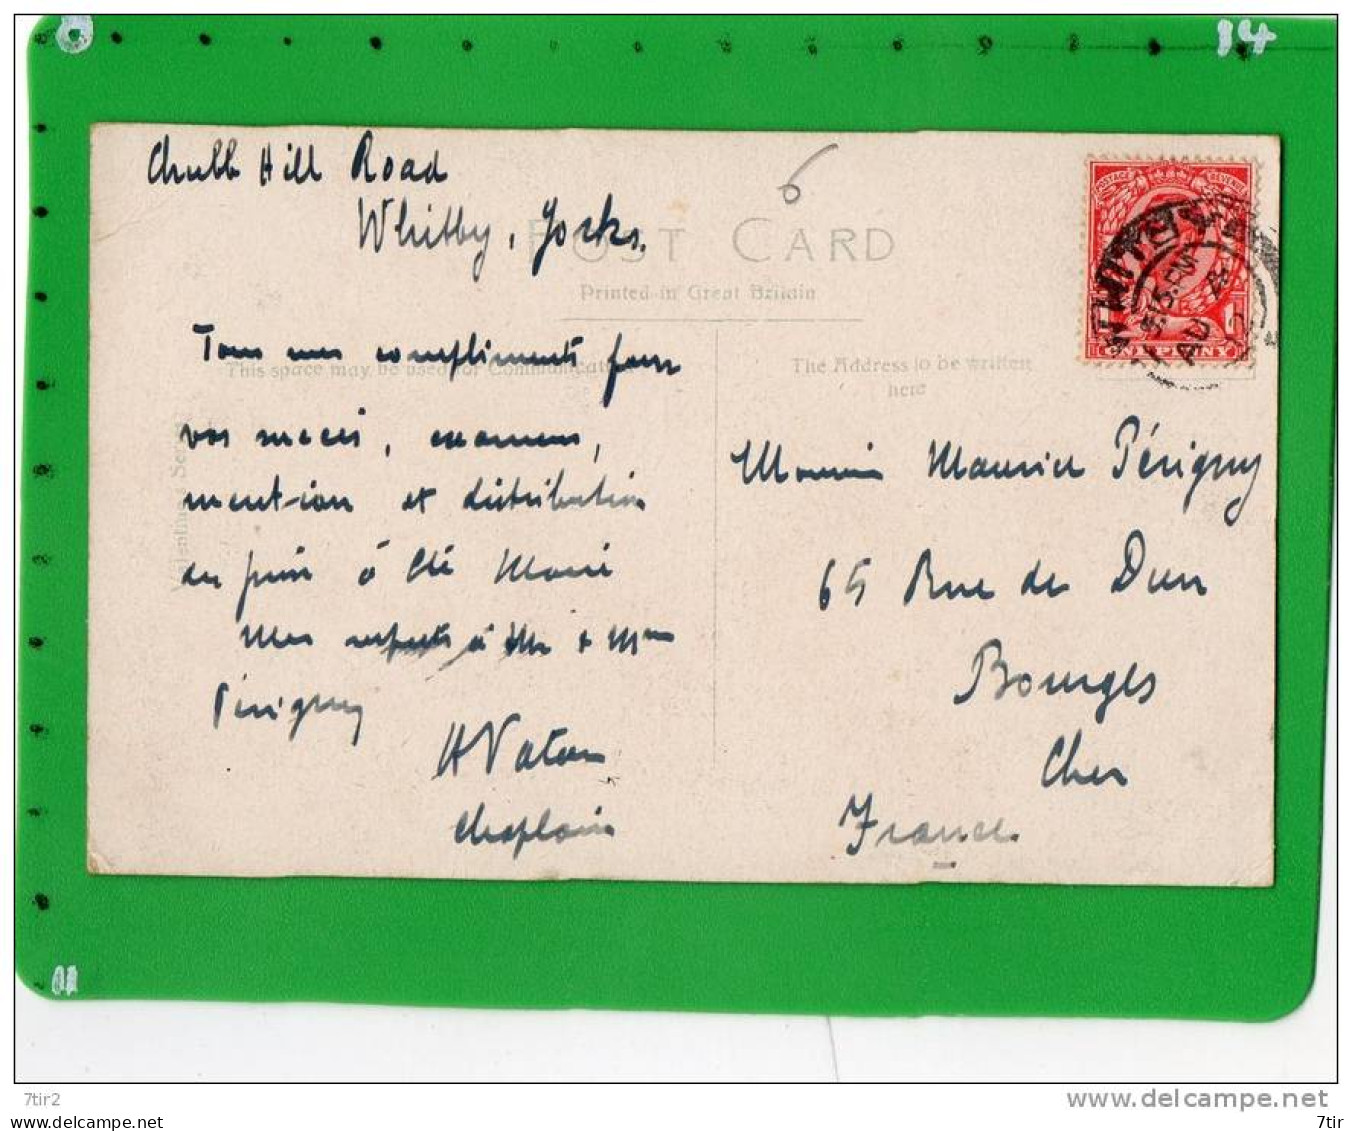 14
Chubb Hill Road
Whitby, Yorks.
6
POST CARD
Printed in Great Britain
This space may be used for Communication
The Address to be written
here
POSTAGE REVENUE
ONE PENNY
WHITBY
5.15 PM
AU
Tous mes compliments pour
vos succès, examens,
mention et distribution
du prix à Ste Marie
Mes respects à Mr & Mme
Périgny
H Vaton
Chaplain
Monsieur Maurice Périgny
65 Rue de Dun
Bourges
Cher
France
Valentine's Series
11
7tir2
www.delcampe.net
7tir